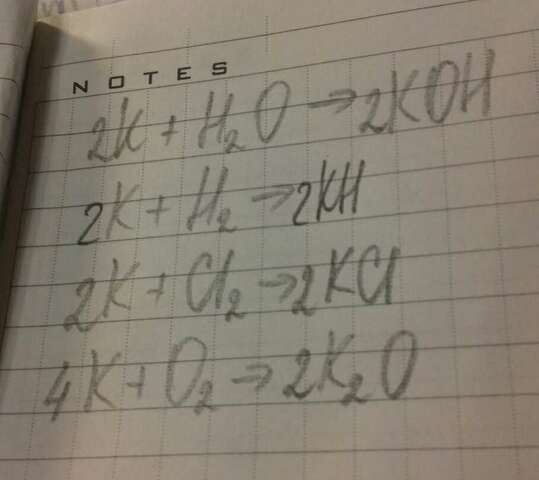 NOTES
2K + H₂O → 2KOH
2K + H₂ → 2KH
2K + Cl₂ → 2KCl
4K + O₂ → 2K₂O